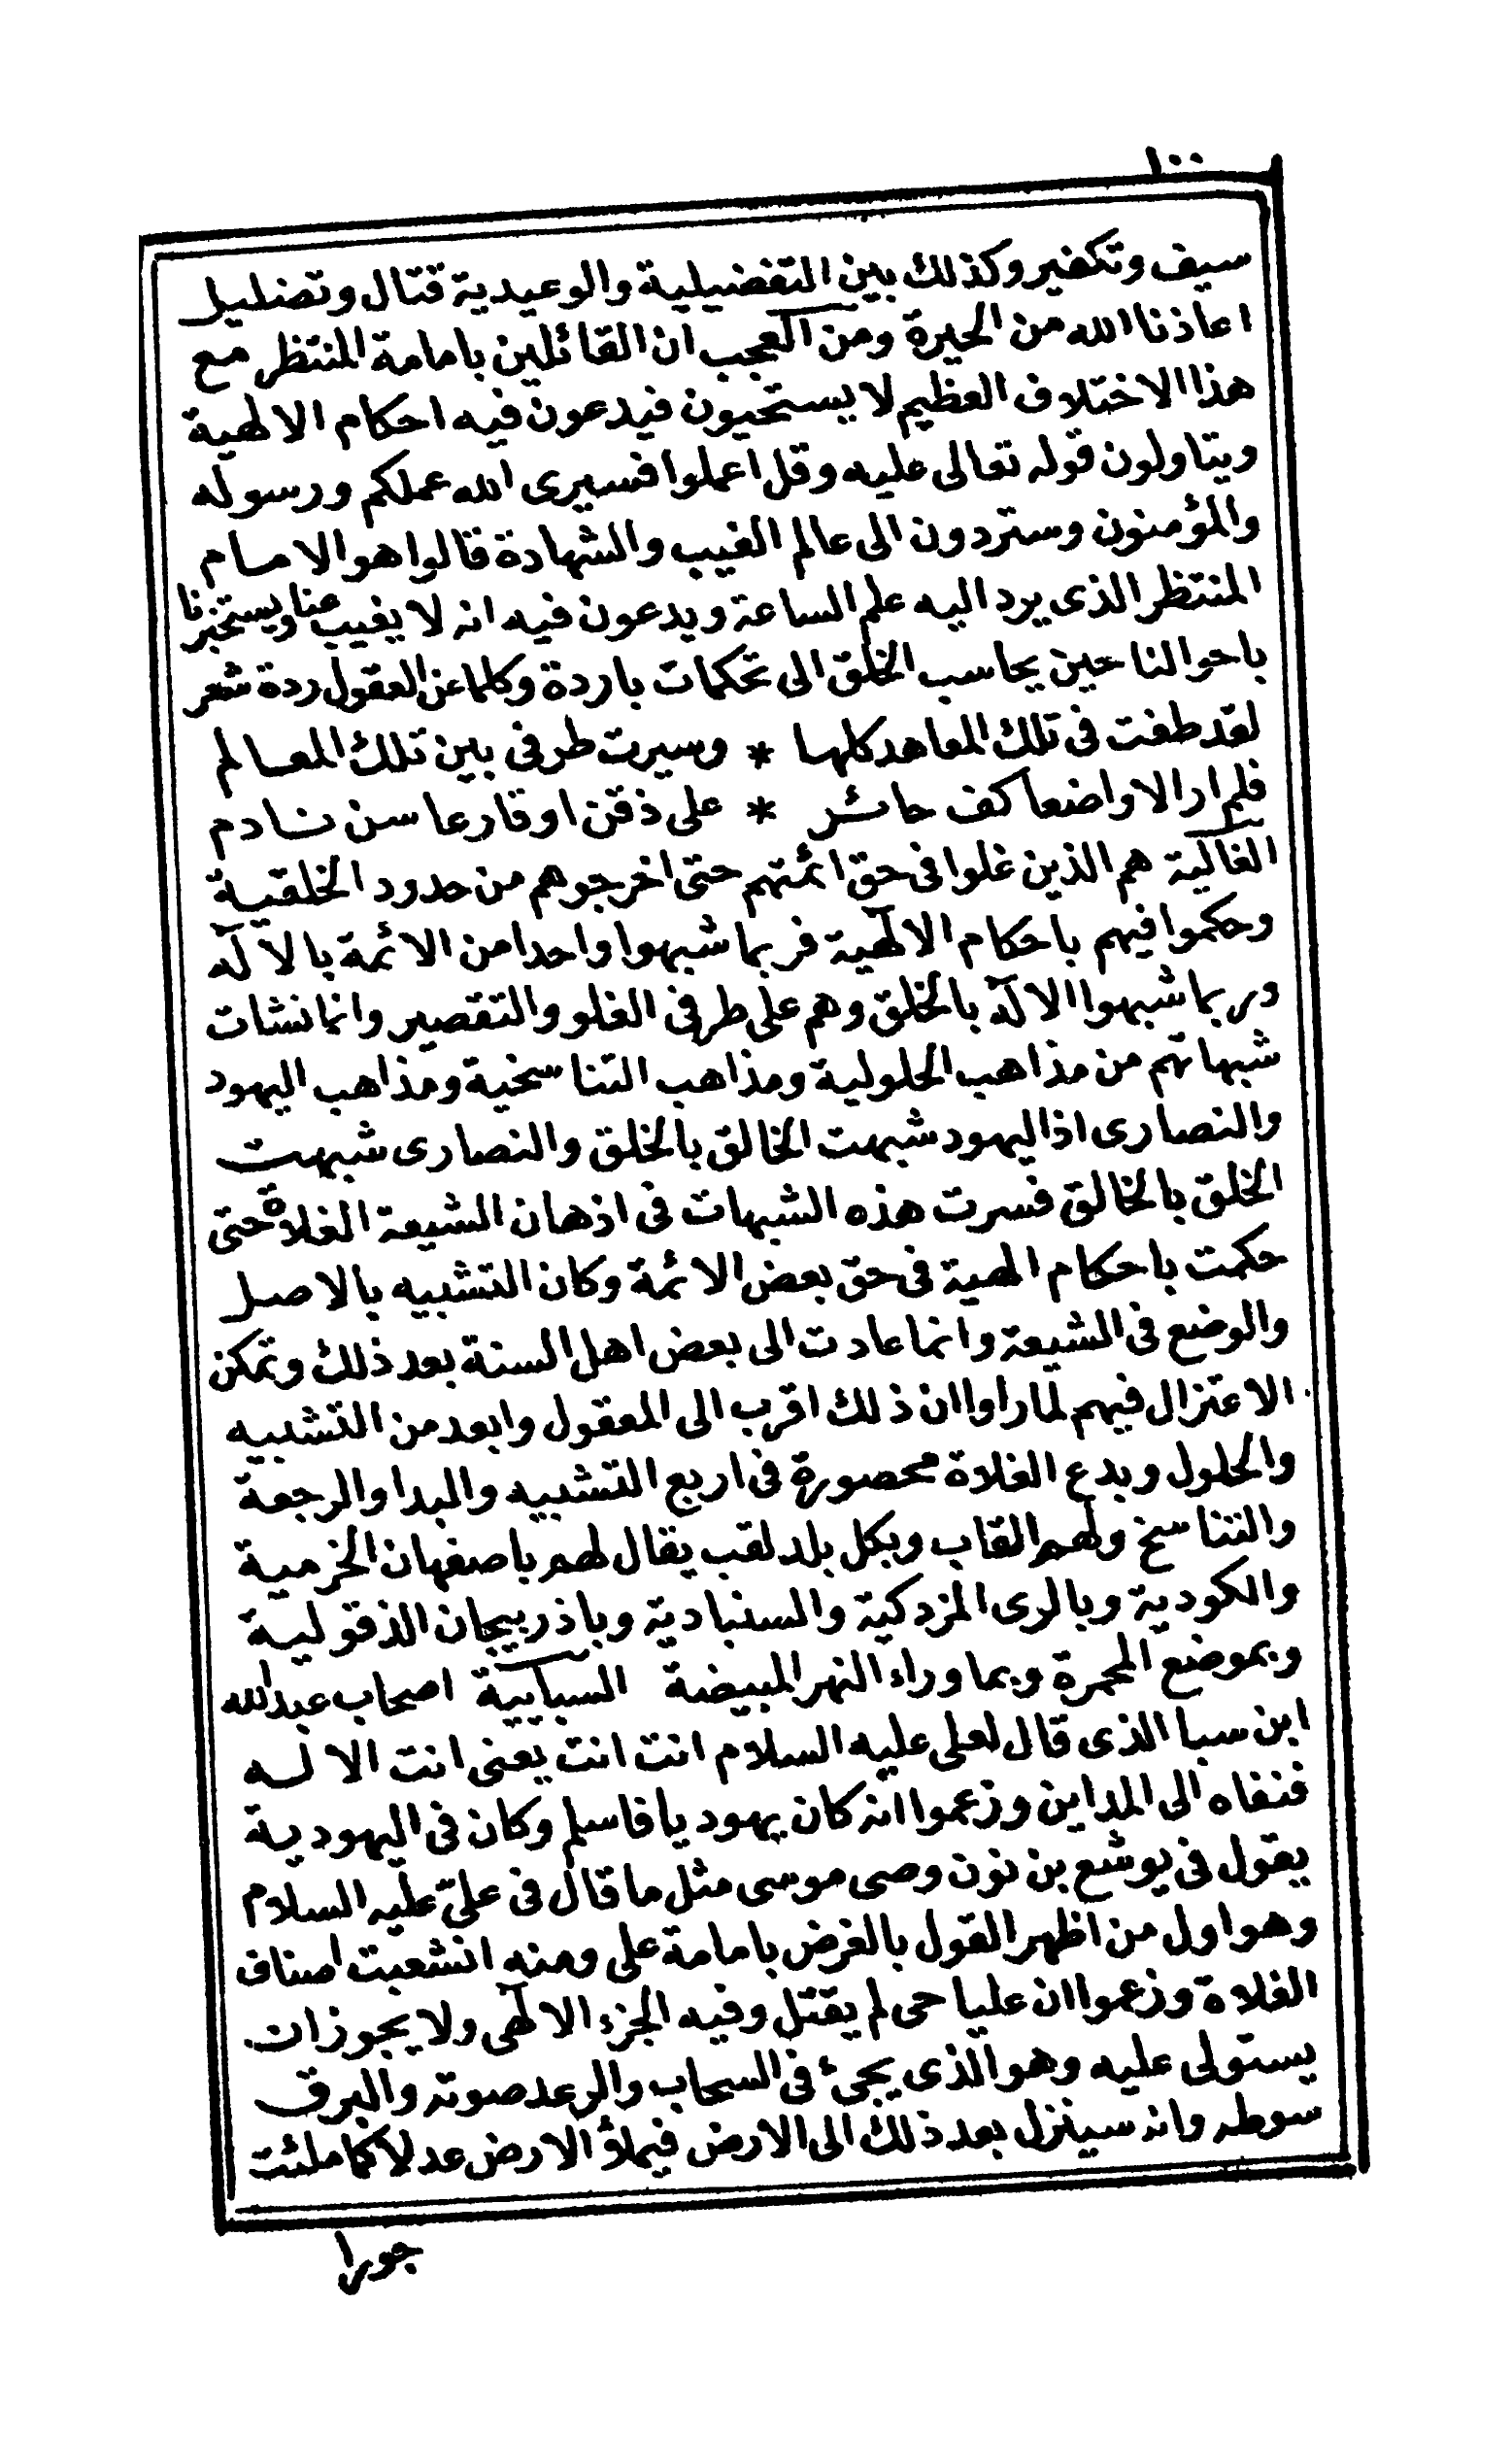 ١٠٠
سيف وتكفير وكذلك بين التفضيلية والوعيدية قتال وتضليل
اعاذنا الله من الحيرة ومن العجب ان القائلين بامامة المنتظر مع
هذا الاختلاف العظيم لا يستحيون فيدعون فيه احكام الالهية
ويتاولون قوله تعالى عليه وقل اعملوا فسيرى الله عملكم ورسوله
والمؤمنون وستردون الى عالم الغيب والشهادة قالوا هو الامام
المنتظر الذى يرد اليه علم الساعة ويدعون فيه انه لا يغيب عنا ويستخبرنا
باحوالنا حين يحاسب الخلق الى تحكمات باردة وكلما عن العقول ردة شعر
لقد طفت فى تلك المعاهد كلها * وسيرت طرفى بين تلك المعالم
فلم ار الا واضعا كف حائر * على ذقن او قارعا سن نادم
الغالية هم الذين غلوا فى حق ائمتهم حتى اخرجوهم من حدود الخلقية
وحكموا فيهم باحكام الالٓهية فربما شبهوا واحدا من الائمة بالالٓه
وربما شبهوا الالٓه بالخلق وهم على طرفى الغلو والتقصير وانما نشات
شبهاتهم من مذاهب الحلولية ومذاهب التناسخية ومذاهب اليهود
والنصارى اذ اليهود شبهت الخالق بالخلق والنصارى شبهت
الخلق بالخالق فسرت هذه الشبهات فى اذهان الشيعة الغلاة حتى
حكمت باحكام الهية فى حق بعض الائمة وكان التشبيه بالاصل
والوضع فى الشيعة وانما عادت الى بعض اهل السنة بعد ذلك وتمكن
الاعتزال فيهم لما راوا ان ذلك اقرب الى المعقول وابعد من التشبيه
والحلول وبدع الغلاة محصورة فى اربع التشبيه والبدا والرجعة
والتناسخ ولهم القاب وبكل بلد لقب يقال لهم باصفهان الخرمية
والكودية وبالرى المزدكية والسنبادية وباذربيجان الذقولية
وبموضع المحمرة وبما وراء النهر المبيضة السبايية اصحاب عبد الله
ابن سبا الذى قال لعلى عليه السلام انت انت يعنى انت الاله
فنفاه الى المداين وزعموا انه كان يهوديا فاسلم وكان فى اليهودية
يقول فى يوشع بن نون وصى موسى مثل ما قال فى علىّ عليه السلام
وهو اول من اظهر القول بالفرض بامامة على ومنه انشعبت اصناف
الغلاة وزعموا ان عليا حى لم يقتل وفيه الجزء الالٓهى ولا يجوز ان
يستولى عليه وهو الذى يجئ فى السحاب والرعد صوته والبرق
سوطه وانه سينزل بعد ذلك الى الارض فيملؤ الارض عدلا كما ملئت
جورا